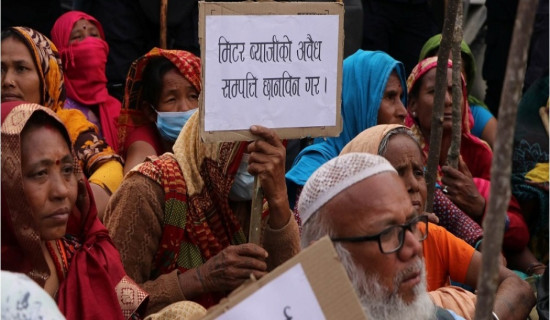 मिटर ब्याजीको अवैध
सम्पत्ति छानविन गर ।